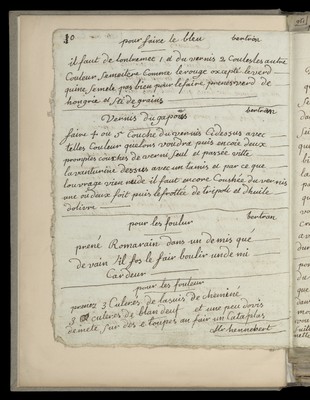 10
pour faire le bleu bertrin
il faut de loutremee 1 et du vernis 2 Coules les autre
Couleur semeslere Comme le rouge excepté le verd
quine se mele pas bien pour le faire prenes verd de
hongrie et stil de grains
bertrin
Vernis du gapons
faire 4 ou 5 Couche du vernis Cidessus avec
telles Couleur que lons voudra puis encoie deux
promptes couches de vernis seul et passée vitte
lavanturine dessus avec un tamis et par ce que
louvrage vien ride il faut encore Couchée du vernis
une ou deux foit puis le frottée de tripole et dhuile
dolivre
bertrin
pour les fouleur
prené Romarain dans un demis que
de vain Il fos le fair boulir unde mi
Cardeur
pour les fouleur
prenez 3 Culeres de lasuis de cheminé
3 culeres de blan deuf et une peu dovis
demete sur dos etoupes au fair un Cataplas
Mr hennebert